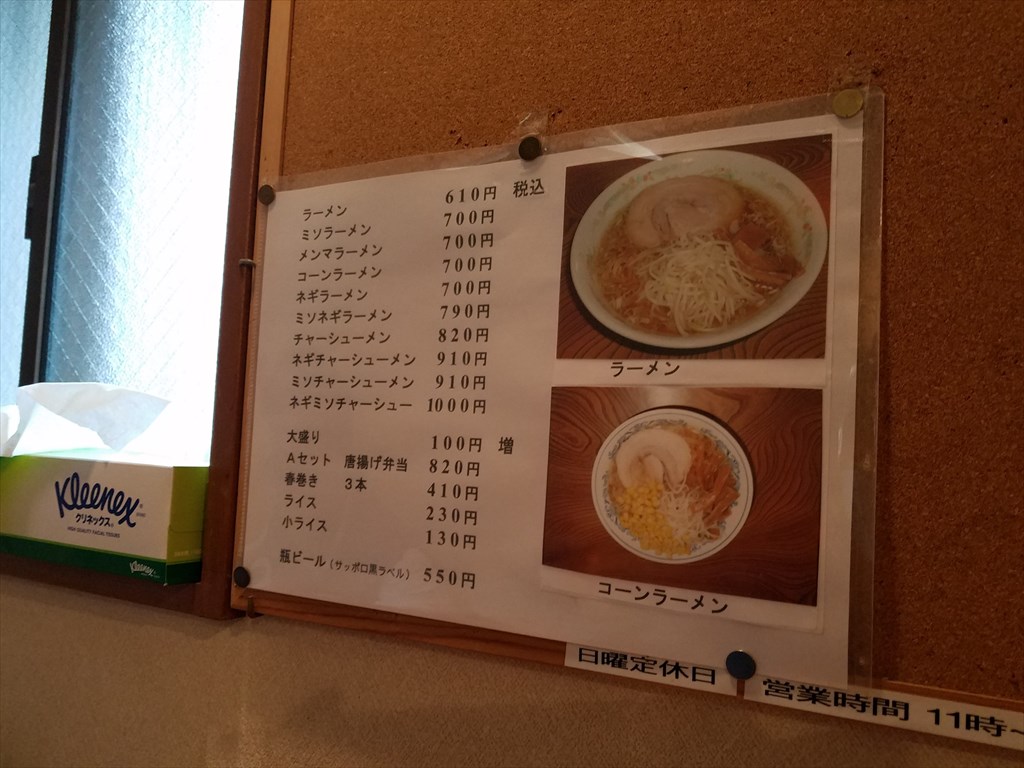 ラーメン 610円 税込
ミソラーメン 700円
メンマラーメン 700円
コーンラーメン 700円
ネギラーメン 700円
ミソネギラーメン 790円
チャーシューメン 820円
ネギチャーシューメン 910円
ミソチャーシューメン 910円
ネギミソチャーシュー 1000円
大盛り 100円 増
Aセット 唐揚げ弁当 820円
春巻き 3本 410円
ライス 230円
小ライス 130円
瓶ビール(サッポロ黒ラベル) 550円
ラーメン
コーンラーメン
日曜定休日
営業時間 11時~
Kleenex
クリネックス
HIGH QUALITY FACIAL TISSUES
Kleenex